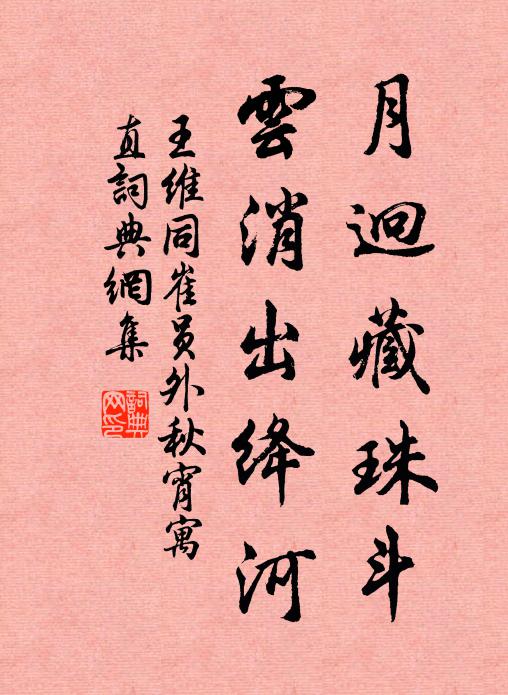 月迥藏珠斗
雲消出绛河
王維同崔员外秋宵寓
直詞典網集
詞典
网印